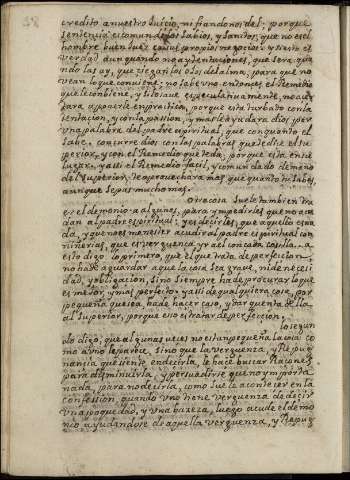 credito a nuestro Juicio, ni fiandonos del; porque
sentencia es comun de los Sabios, y Santos, que no es el
hombre buen Juez en sus propios negocios: y si esto es
verdad aun quando no ay tentaciones, que sera quan
do las ay, que ciegan los ojos del alma, para que no
vean lo que conviene: no sabe uno entonces el Remedio
que le conbiene, y si lo save especulativamente, no
para ponerle en practica, porque esta turbado con la
tentacion, y con la passion, y mas le ayudara dios por
una palabra del padre espiritual, que con quanto el
Sabe. concurre dios con las palabras que le dice el su
perior, y con el Remedio que le da; porque esta en su
lugar, y assi el Remedio facil, y comun dado de mano
del Superior, te aprovechara mas que quanto tu Sabes,
aunque Sepas mucho mas.
Otra cosa Suele tambien tra
er el demonio a algunos, para ympedirles que no acu
dan al padre espiritual: y es decirles, que aquello es na
da, y que no es menester acudir al padre espiritual con
niñerias, que es verguença yr a el con cada cosilla. a
esto digo lo primero, que el que trata de perfeccion,
no ha de aguardar a que la cosa sea grave, ni de necesi
dad, y obligacion, Sino siempre ha de procurar lo que
es mejor, y mas perfecto: y assi de qualquiera cosa, por
pequeña que sea ha de hacer caso, y dar quenta de ella
al Superior, porque eso es tratar de perfeccion.
lo segun
do digo, que algunas veces no es tan pequeña la cosa co
mo a uno le parece, Sino que la verguença, y Repug
nancia que siente en decirla, le hace buscar Raçones
para disminuirla, y persuadirse que no ymporta
nada, para no decirla, como suele acontecer en la
confession, quando uno tiene verguença de decir
una poquedad, y una baxeza, luego acude el demo
nio ayudandose de aquella verguença, y Repug